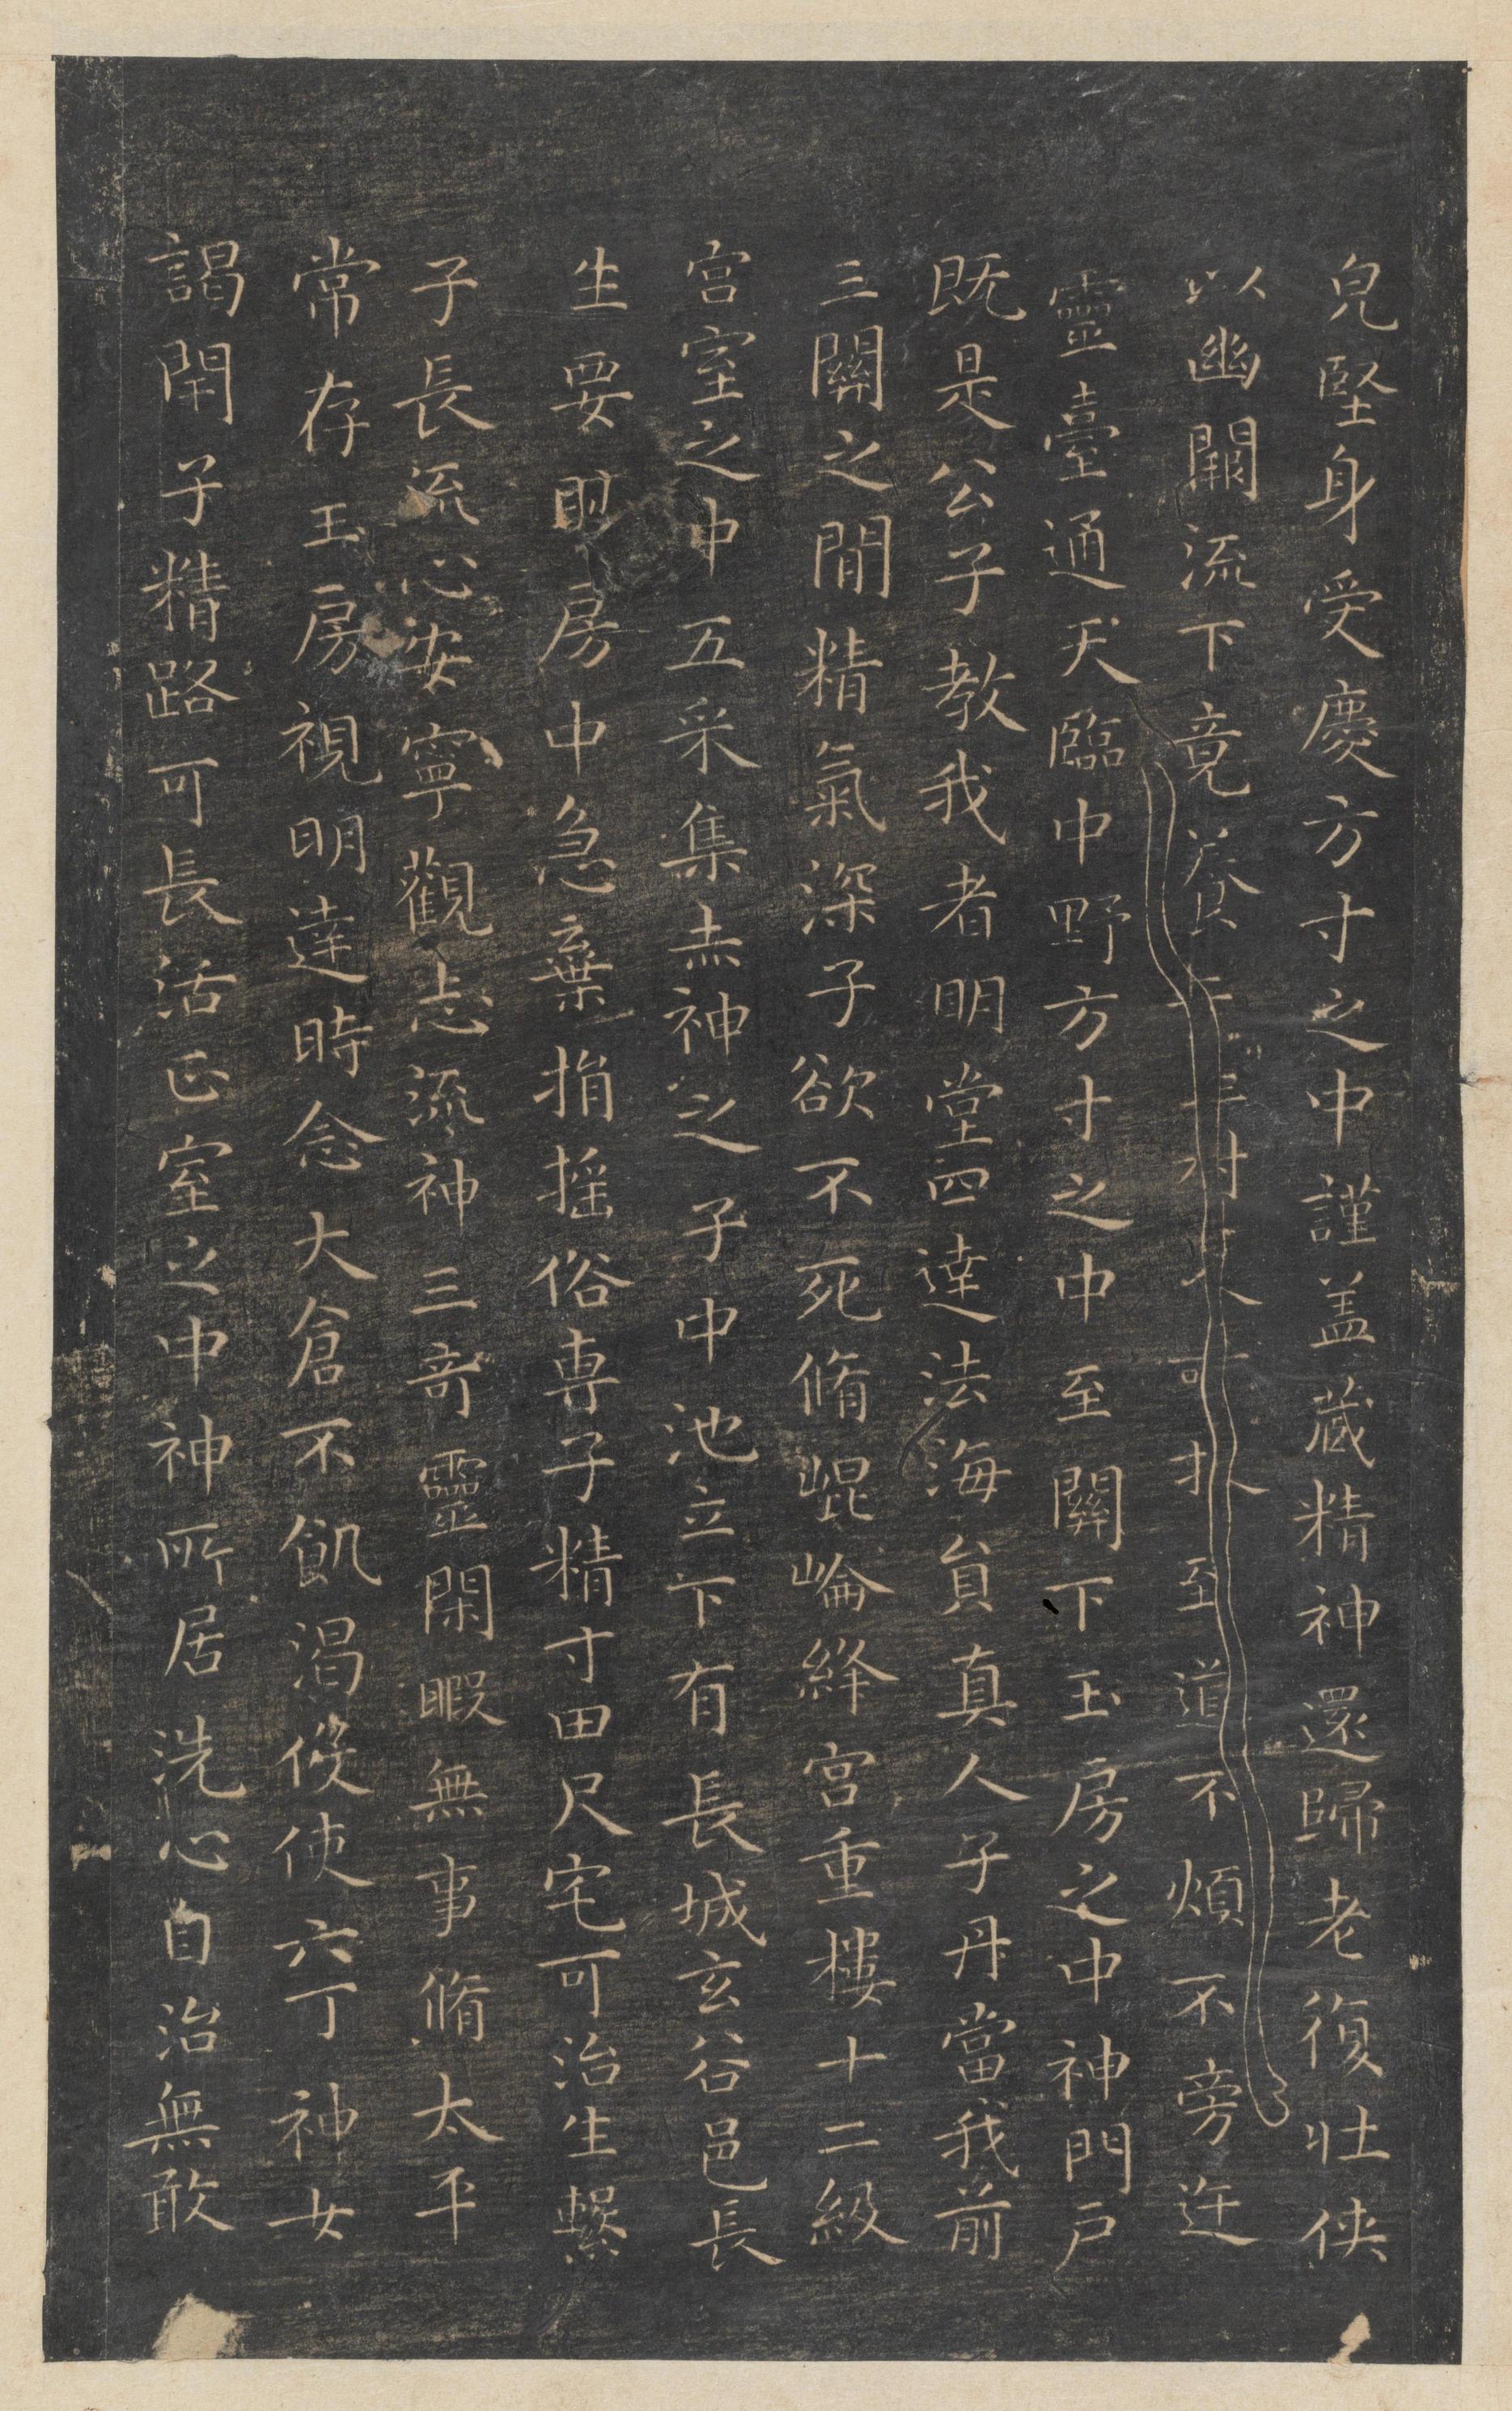 皃堅身受慶方寸之中謹盖藏精神還歸老復壯侠
以幽闕流下竟養子玉樹不可扶至道不煩不旁迕
靈臺通天臨中野方寸之中至關下玉房之中神門戶
既是公子教我者明堂四達法海負真人子丹當我前
三關之間精氣深子欲不死脩崐崘絳宮重樓十二級
宮室之中五采集赤神之子中池立下有長城玄谷邑長
生要眇房中急棄捐揺俗専子精寸田尺宅可治生繫
子長流心安寧觀志流神三竒靈閑暇無事脩太平
常存玉房視明達時念大倉不飢渴伇使六丁神女
謁閇子精路可長活正室之中神所居洗心自治無敢